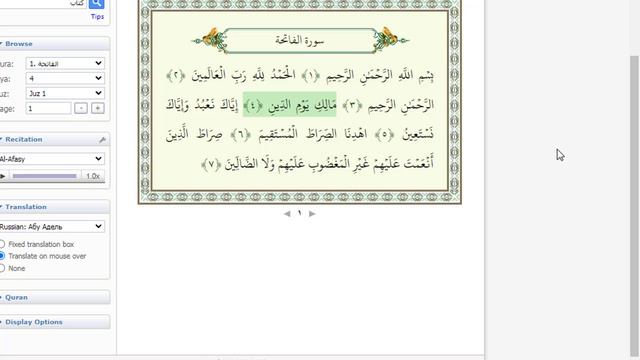 كتاب
Tips
Browse
ura:
1. الفاتحة
ya:
4
uz:
Juz 1
age:
1
-
+
Recitation
Al-Afasy
1.0x
Translation
Russian: Абу Адель
Fixed translation box
Translate on mouse over
None
Quran
Display Options
سورة الفاتحة
بِسْمِ اللَّهِ الرَّحْمَٰنِ الرَّحِيمِ ﴿١﴾ الْحَمْدُ لِلَّهِ رَبِّ الْعَالَمِينَ ﴿٢﴾
الرَّحْمَٰنِ الرَّحِيمِ ﴿٣﴾ مَالِكِ يَوْمِ الدِّينِ ﴿٤﴾ إِيَّاكَ نَعْبُدُ وَإِيَّاكَ
نَسْتَعِينُ ﴿٥﴾ اهْدِنَا الصِّرَاطَ الْمُسْتَقِيمَ ﴿٦﴾ صِرَاطَ الَّذِينَ
أَنْعَمْتَ عَلَيْهِمْ غَيْرِ الْمَغْضُوبِ عَلَيْهِمْ وَلَا الضَّالِّينَ ﴿٧﴾
١